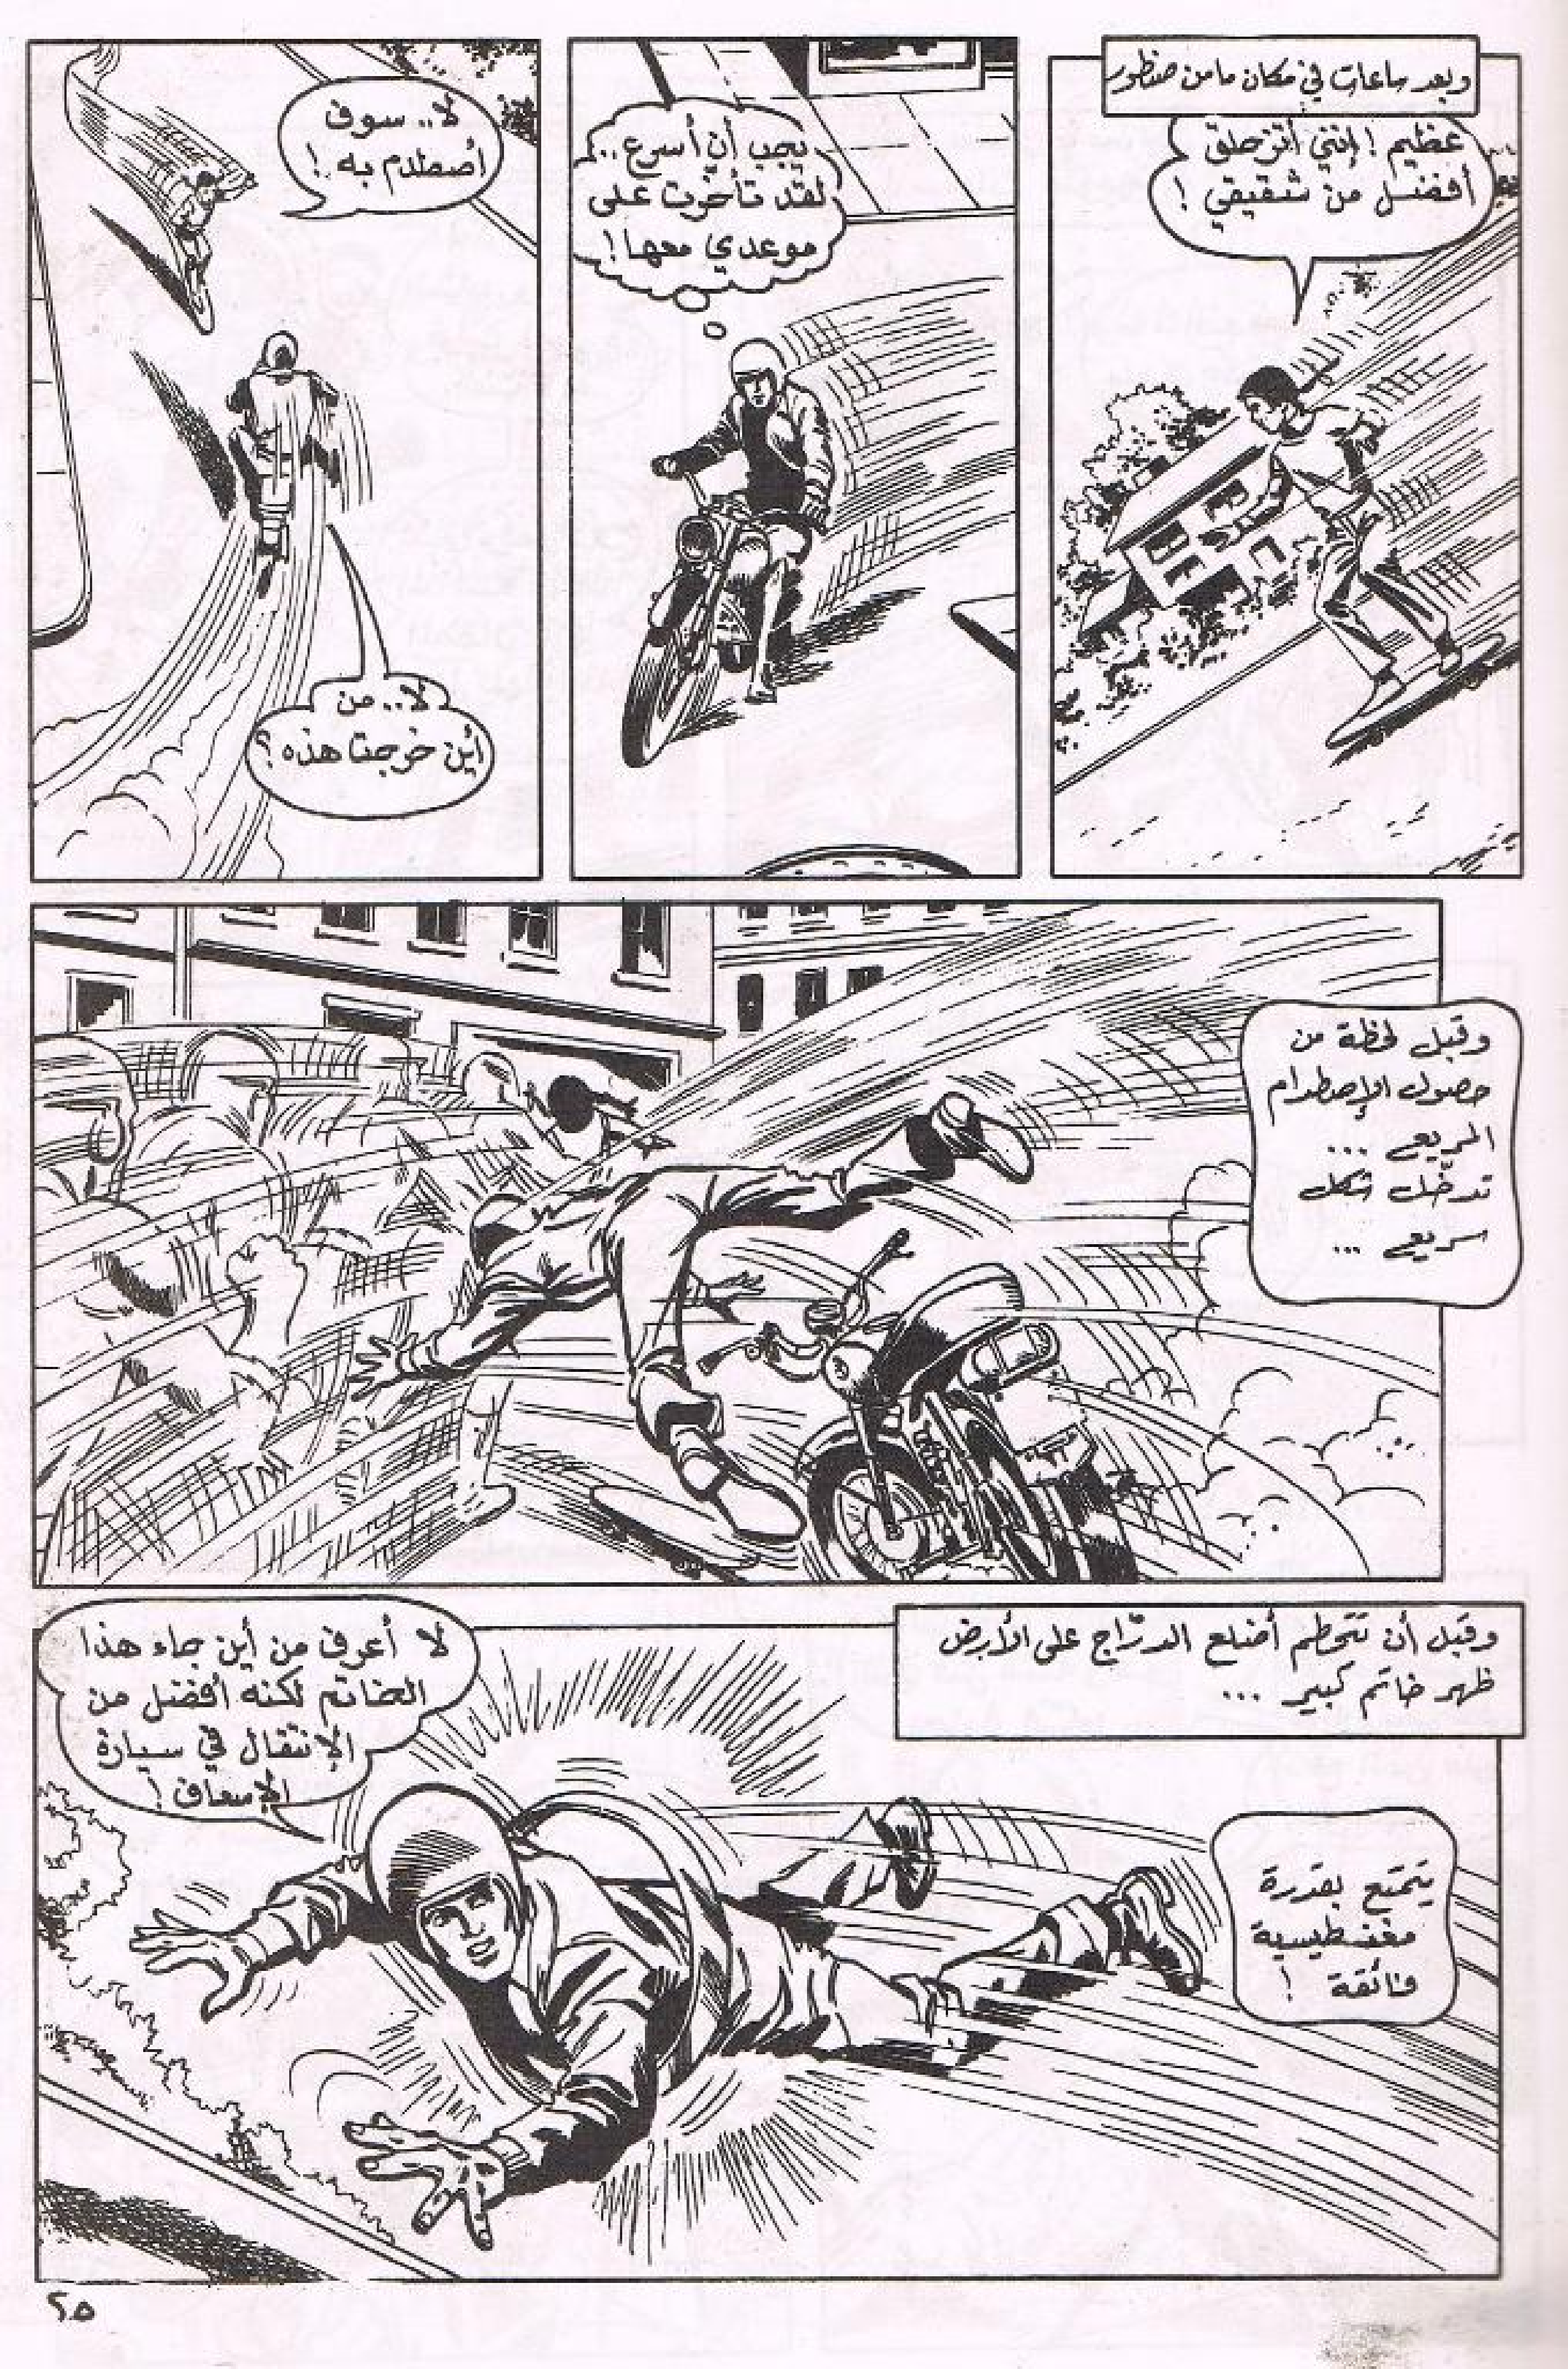 وبعد ساعات في مكان ما من صنطور
عظيم ! إنني أتزحلق
أفضل من شقيقي !
يجب أن أسرع ..
لقد تأخرت على
موعدي معها !
لا .. سوف
أصطدم به !
لا .. من
أين خرجت هذه ؟
وقبل لحظة من
حصول الإصطدام
المريع ...
تدخل شكل
سريع ...
وقبل أن تتحطم أضلع الدرّاج على الأرض
ظهر خاتم كبير ...
لا أعرف من أين جاء هذا
الخاتم لكنه أفضل من
الإنتقال في سيارة
الإسعاف !
يتمتع بقدرة
مغنطيسية
فائقة !
٢٥